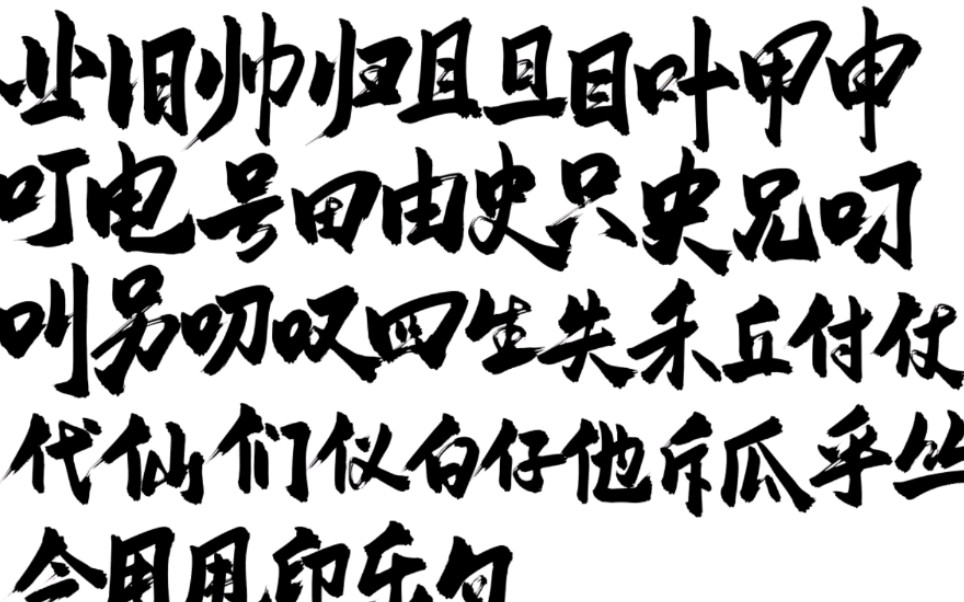 业旧帅归且旦目叶甲申
叮电号田由史只央兄叼
叫另叨叹四生失禾丘付仗
代仙们仪白仔他斥瓜乎丛
令用甩印乐句